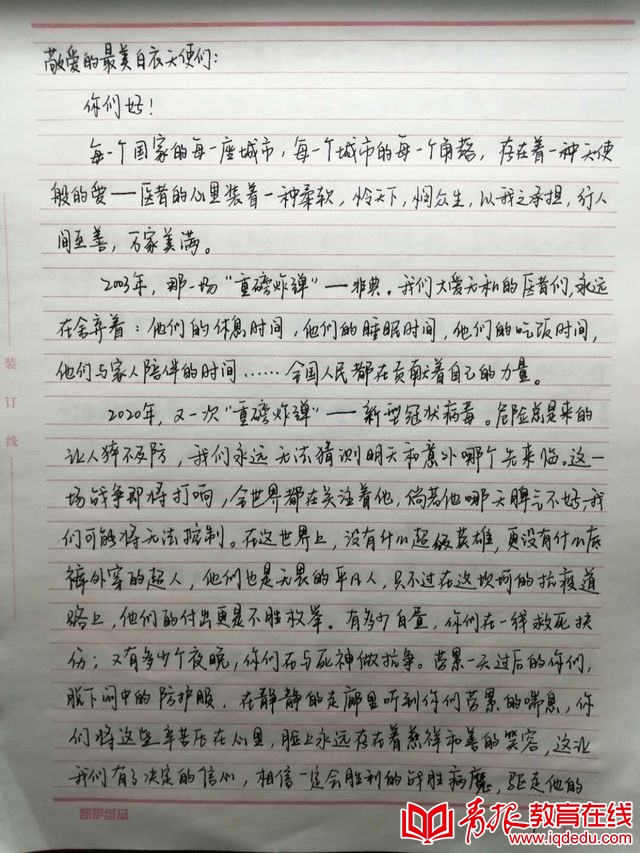 敬爱的最美白衣天使们：
你们好！
每一个国家的每一座城市，每一个城市的每一个角落，存在着一种天使
般的爱——医者的心里装着一种柔软，怜天下，悯众生，以我之承担，行人
间至善，万家美满。
2003年，那一场“重磅炸弹”——非典。我们大爱无私的医者们，永远
在舍弃着：他们的休息时间，他们的睡眠时间，他们的吃饭时间，
他们与家人陪伴的时间……全国人民都在贡献着自己的力量。
2020年，又一次“重磅炸弹”——新型冠状病毒。危险总是来的
让人猝不及防，我们永远无法猜测明天和意外哪个先来临。这一
场战争即将打响，全世界都在关注着他，倘若他哪天脾气不好，我
们可能将无法控制。在这世界上，没有什么超级英雄，更没有什么底
裤外穿的超人，他们也是无畏的平凡人，只不过在这坎坷的抗疫道
路上，他们的付出更是不胜枚举。有多少白昼，你们在一线救死扶
伤；又有多少个夜晚，你们在与死神做抗争。劳累一天过后的你们，
脱下闷中的防护服，在静静的走廊里听到你们劳累的喘息，你
们将这些辛苦压在心里，脸上永远存在着慈祥和善的笑容，这让
我们有了决定的信心，相信一定会胜利的战胜病魔，驱走他的
装订线
凯萨纸品
青报教育在线
www.iqdedu.com